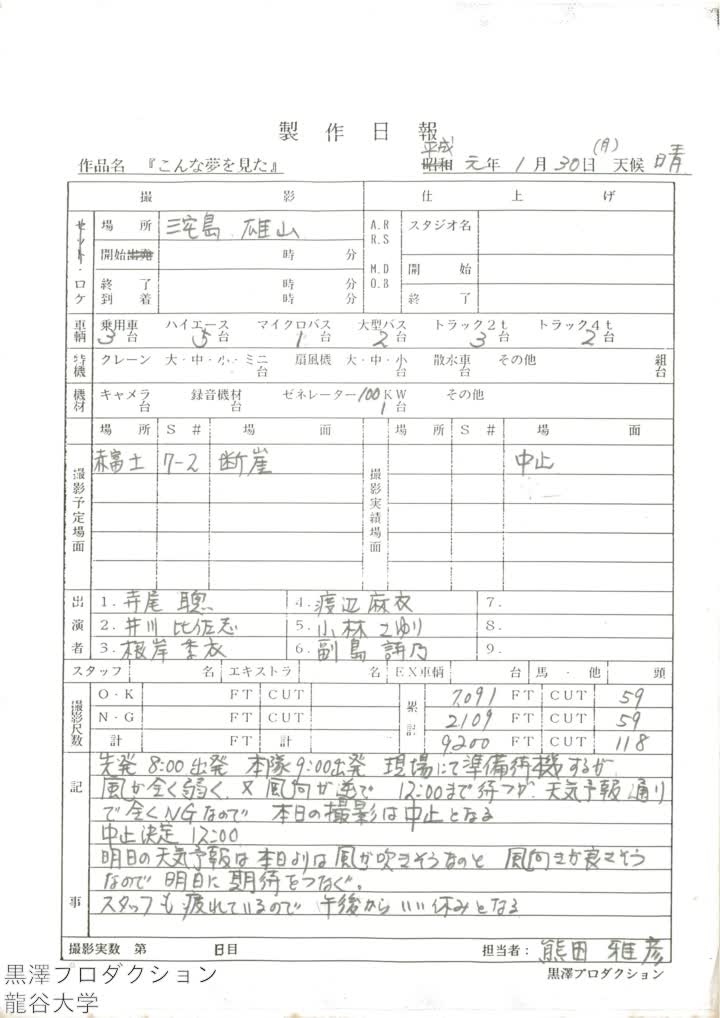 製作日報
作品名 『こんな夢を見た』 昭和 平成 元年 1月30日 (月) 天候 晴
撮影 仕上げ
セット・ロケ 場所 三宅島 雄山 A.R R.S スタジオ名
開始 出発 時 分 M.D O.B 開始
終了 到着 時 分 時 分 終了
車輌 乗用車 3台 ハイエース 5台 マイクロバス 1台 大型バス 2台 トラック2t 3台 トラック4t 2台
特機 クレーン 大・中・小・ミニ 台 扇風機 大・中・小 台 散水車 台 その他 組 台
機材 キャメラ 台 録音機材 ゼネレーター 100KW 1台 その他
場所 S# 場面 場所 S# 場面
撮影予定場面 赤富士 7-2 断崖 撮影実績場面 中止
出演者 1. 寺尾 聰 4. 渡辺麻衣 7.
2. 井川 比佐志 5. 小林さゆり 8.
3. 根岸季衣 6. 副島 詩乃 9.
スタッフ 名 エキストラ 名 EX車輌 台 馬・他 頭
撮影尺数 O・K FT CUT 累計 7,091 FT CUT 59
N・G FT CUT 2109 FT CUT 59
計 FT 計 9200 FT CUT 118
記事 先発 8:00出発 本隊 9:00出発 現場にて準備待機するが
風が全く弱く、又風向が逆で 12:00まで待つが、天気予報通り
で全くNGなので 本日の撮影は中止となる
中止決定 12:00
明日の天気予報は本日よりは風が吹きそうなのと 風向きが良さそう
なので 明日に期待をつなぐ。
スタッフも疲れているので 午後からいい休みとなる
撮影実数 第 日目 担当者: 熊田 雅彦
黒澤プロダクション
黒澤プロダクション
龍谷大学